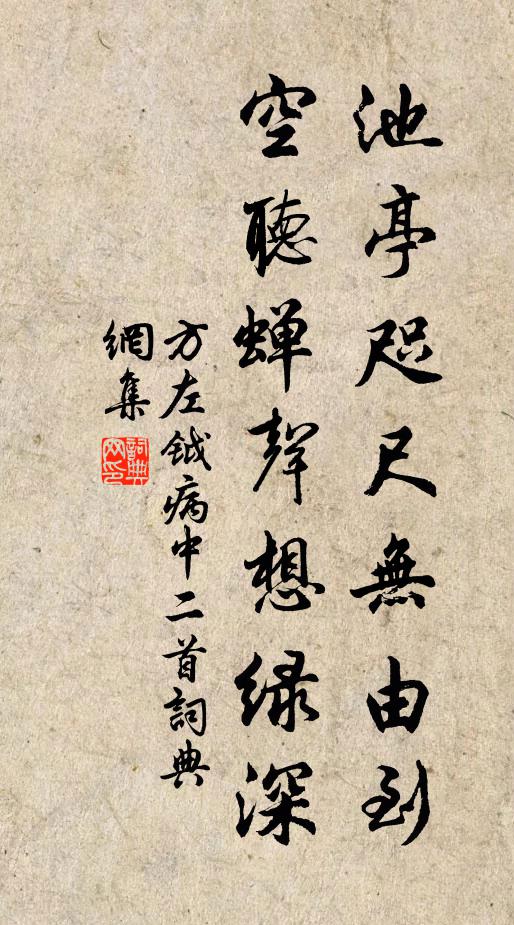 池亭咫尺無由到
空聽蟬聲想緑深
方左鉞病中二首詞典
網集
詞典
网印